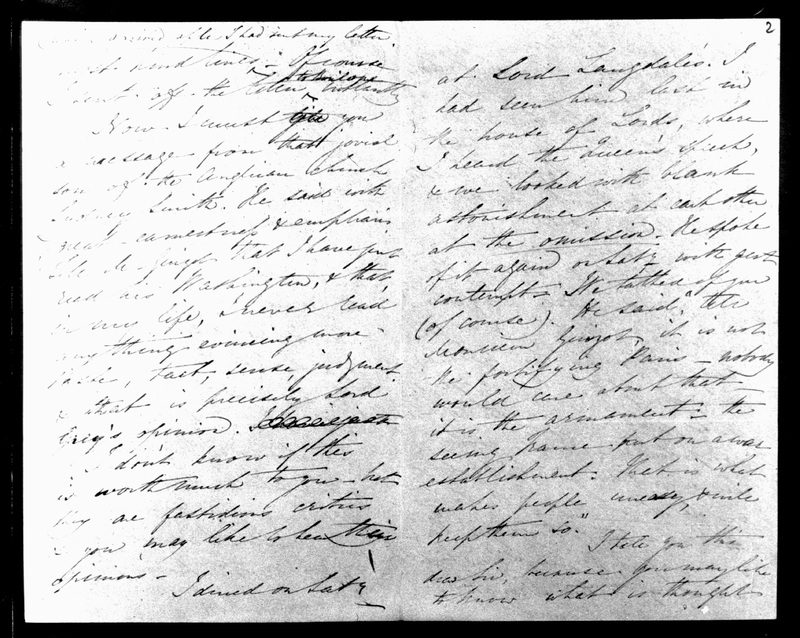 arrived after I had sent my letter.
most kind lines. Of course
I sent off the letter, to Milord instantly
Now I must tell you
a message from that jovial
son of the Anglican Church
Sydney Smith. He said with
great earnestness & emphasis
Tell M. Guizot that I have just
read his Washington, & that
in my life, I never read
anything evincing more
taste, tact, sense, judgment
& that is precisely Lord
Grey's opinion.
I don't know if this
is worth much to you - but
they are fastidious critics
& you may like to hear their
opinions -
I dined on Saty
2
at Lord Langdale's. I
had seen him last in
the house of Lords, where
I heard the Queen's speech,
& we looked with blank
astonishment at each other
at the omission. He spoke
of it again on Saty with great
contempt. We talked of you
(of course). He said, "tell
Monsieur Guizot, it is not
the fortifying Paris - nobody
would care about that -
it is the armament - the
seeing France put on a war
establishment. That is what
makes people uneasy, & will
keep them so."
I tell you this
dear Sir, because you may like
to know what is thought